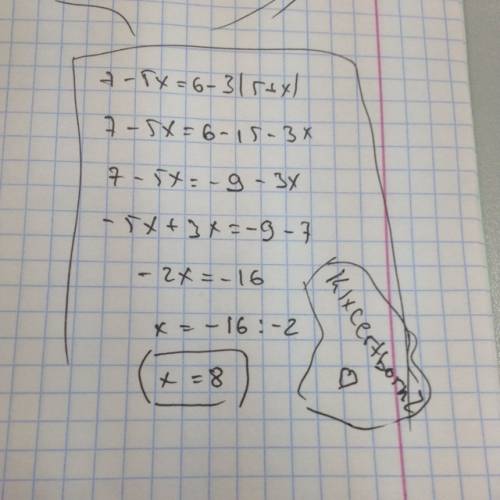 7 - 5x = 6 - 3(5+x)
7 - 5x = 6 - 15 - 3x
7 - 5x = -9 - 3x
-5x + 3x = -9 - 7
-2x = -16
x = -16 : -2
x = 8